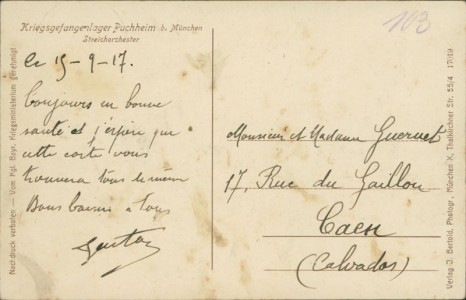 Kriegsgefangenlager Puchheim b. München
Streichorchester
103
Le 15-9-17.
Toujours en bonne
santé et j'espère que
cette carte vous
trouvera tous de même
Bons baisers a tous
Gaston
Monsieur et Madame Guernet
17, Rue du Gaillon
Caen
(Calvados)
Nachdruck verboten — Vom Kgl. Bayr. Kriegsministerium genehmigt
Verlag J. Bertold, Photogr., München X, Thalkirchner Str. 55/4 17/19